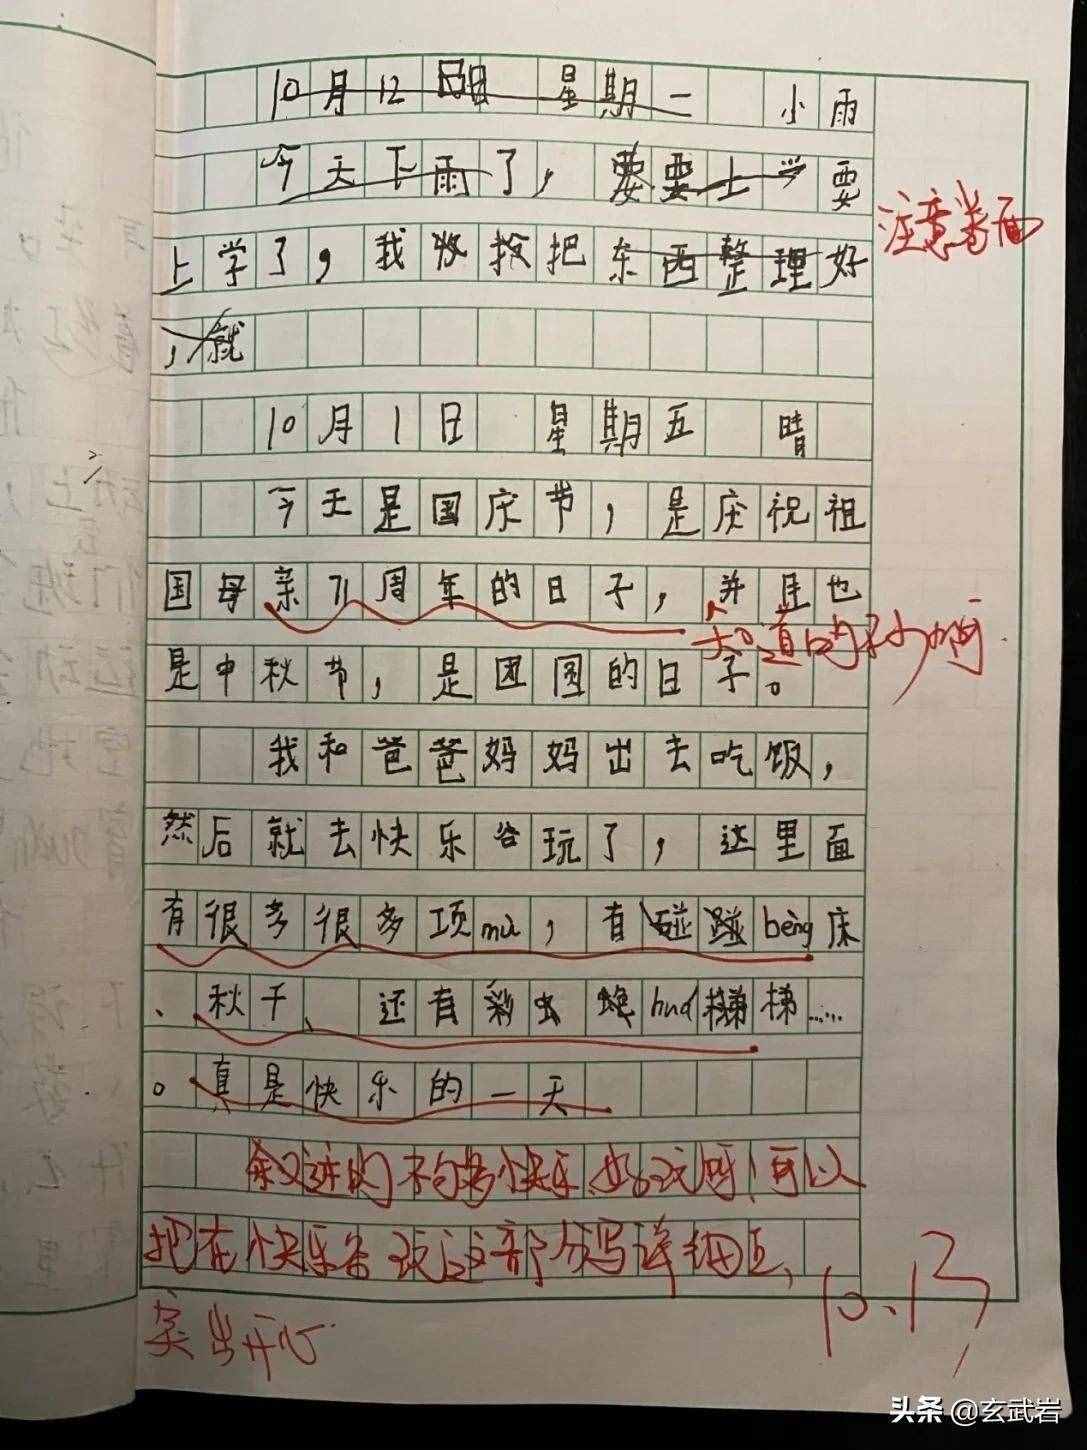 10月12日 星期二 小雨
今天下雨了，要要上学要
注意卷面
上学了，我收拾把东西整理好
，就
10月1日 星期五 晴
今天是国庆节，是庆祝祖
国母亲71周年的日子，并且也
知道的不少啊
是中秋节，是团圆的日子。
我和爸爸妈妈出去吃饭，
然后就去快乐谷玩了，这里面
有很多很多项mù，有碰蹦bèng床
、秋千、还有彩虫 huá梯梯……
。真是快乐的一天
叙述的不够多快乐、好玩呀！可以
把在快乐谷玩这部分写详细点、
突出开心
10.13
头条 @玄武岩